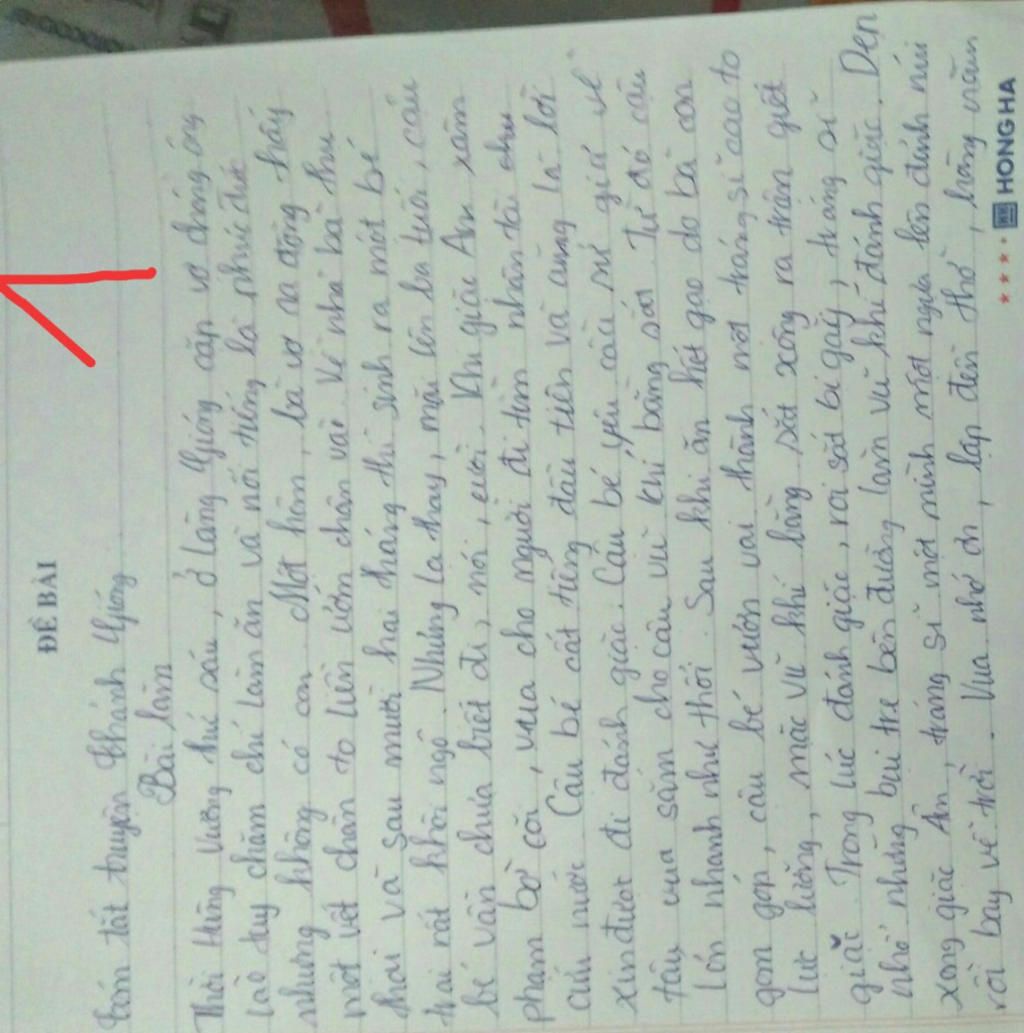 ĐỀ BÀI
Tóm tắt truyện Thánh Gióng
Bài làm
Thời Hùng Vương thứ sáu, ở làng Gióng cặp vợ chồng ông
lão tuy chăm chỉ làm ăn và nổi tiếng là phúc đức
nhưng không có con. Một hôm, bà vợ ra đồng thấy
một vết chân to liền ướm chân vào. Về nhà bà thụ
thai và sau mười hai tháng thì sinh ra một bé
trai rất khôi ngô. Nhưng lạ thay, mãi lên ba tuổi, cậu
bé vẫn chưa biết đi, nói, cười. Khi giặc Ân xâm
phạm bờ cõi, vua cho người đi tìm nhân tài cứu
cứu nước. Cậu bé cất tiếng đầu tiên và cũng là lời
xin được đi đánh giặc. Cậu bé yêu cầu sứ giả về
tâu vua sắm cho cậu vũ khí bằng sắt. Từ đó cậu
lớn nhanh như thổi. Sau khi ăn hết gạo do bà con
gom góp, cậu bé vươn vai thành một tráng sĩ cao to
lực lưỡng, mặc vũ khí bằng sắt xông ra trận giết
giặc. Trong lúc đánh giặc, roi sắt bị gãy, tráng sĩ
nhổ những bụi tre bên đường làm vũ khí đánh giặc. Dẹp
xong giặc Ân, tráng sĩ một mình một ngựa lên đỉnh núi
rồi bay về trời. Vua nhớ ơn, lập đền thờ, hằng năm
HONG HA